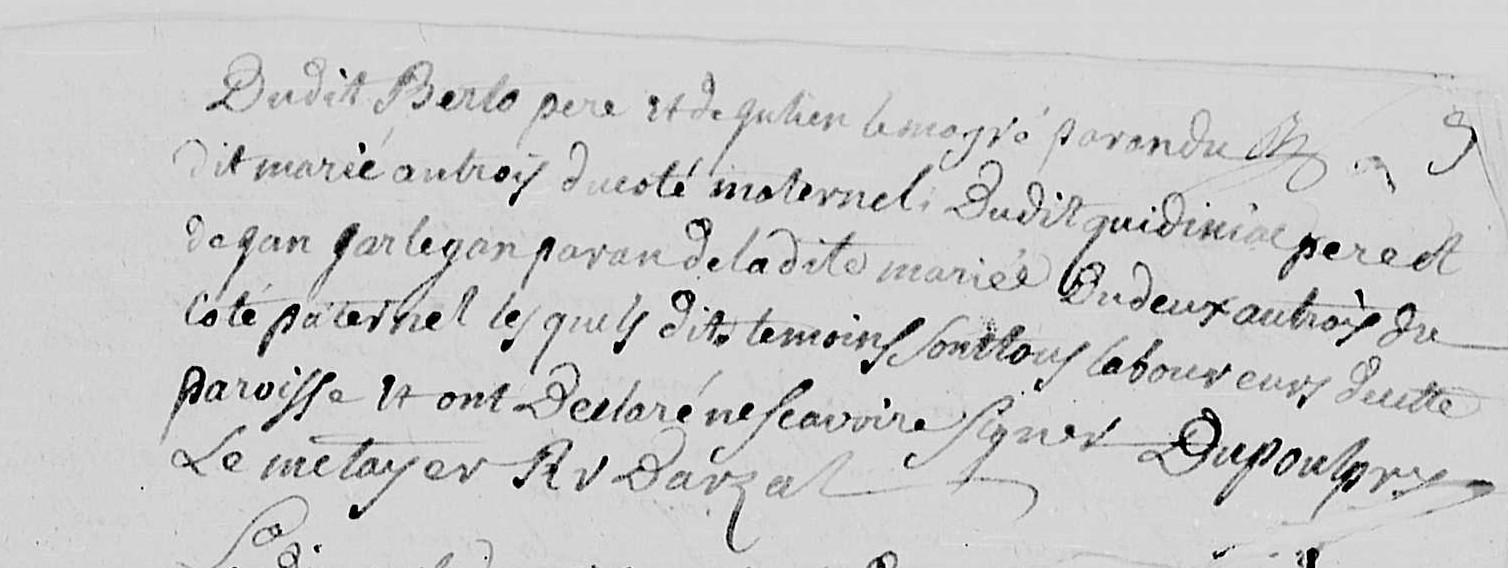 Dudit Berlo pere et de gulien lemogré paran du
dit marié autrois ducoté maternel Dudit guidiniac pere et
de gan garlegan paran deladite mariée Dudeux autrois du
coté paternel lesquels dits temoins sont tous laboureurs decette
paroisse et ont Declaré ne scavoire signer Dupou
Le metayer Rr Darzal